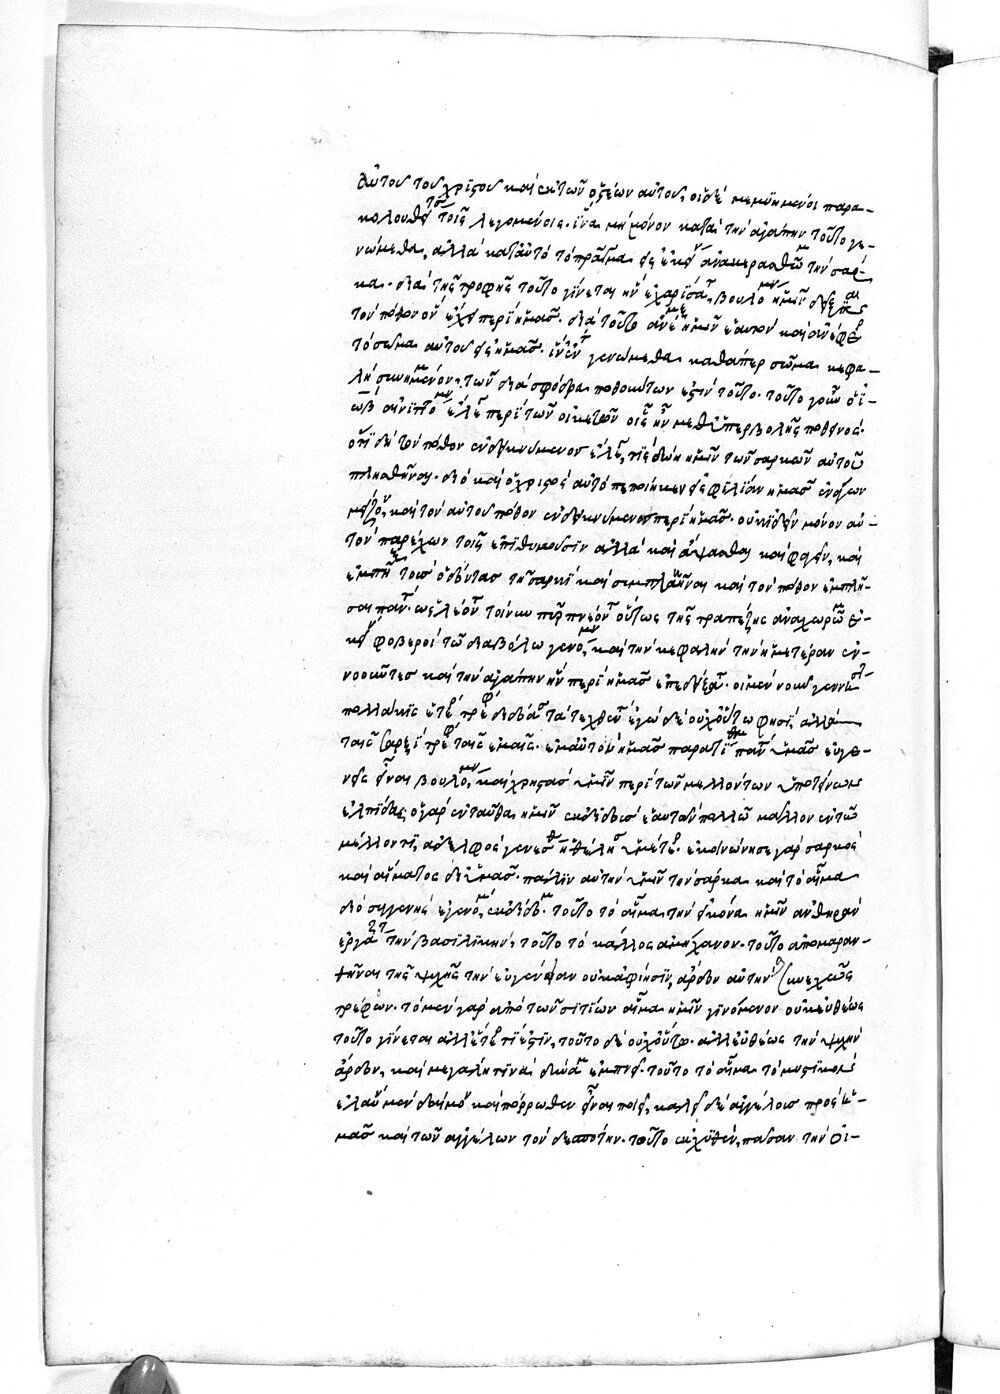 αὐτοῦ τοῦ χριστοῦ καὶ ἐκ τῶν ὀστέων αὐτοῦ, οἱ δὲ μεμυημένοι παρα-
κολουθεῖτε τοῖς λεγομένοις. ἵνα μὴ μόνον κατὰ τὴν ἀγάπην τοῦτο γε-
νώμεθα, ἀλλὰ κατ' αὐτὸ τὸ πρᾶγμα εἰς ἐκείνην ἀνακερασθῶμεν τὴν σάρ-
κα. διὰ τῆς τροφῆς τοῦτο γίνεται ἣν ἐχαρίσατο, βουλόμενος ἡμῖν δεῖξαι
τὸν πόθον ὃν ἔχει περὶ ἡμᾶς. διὰ τοῦτο ἀνέμιξεν ἡμῖν ἑαυτὸν καὶ ἀνέφυρε
τὸ σῶμα αὐτοῦ εἰς ἡμᾶς. ἵν' ἕν τι γενώμεθα καθάπερ σῶμα κεφα-
λῇ συνημμένον. τῶν σφόδρα ποθούντων ἐστὶν τοῦτο. τοῦτο γοῦν ὁ ἰ-
ὼβ αἰνιττόμενος ἔλεγε περὶ τῶν οἰκετῶν οἷς ἦν μεθ' ὑπερβολῆς ποθεινός.
οἵτινες τὸν πόθον ἐνδεικνύμενοι ἔλεγον, τίς δώῃ ἡμῖν τῶν σαρκῶν αὐτοῦ
πλησθῆναι. διὸ καὶ ὁ χριστὸς αὐτὸ πεποίηκεν εἰς φιλίαν ἡμᾶς ἐνάγων
μείζονα, καὶ τὸν αὐτοῦ πόθον ἐνδεικνύμενος περὶ ἡμᾶς. οὐκ ἰδεῖν μόνον αὐ-
τὸν παρέχων τοῖς ἐπιθυμοῦσιν ἀλλὰ καὶ ἅψασθαι καὶ φαγεῖν, καὶ
ἐμπῆξαι τοὺς ὀδόντας τῇ σαρκὶ καὶ συμπλακῆναι καὶ τὸν πόθον ἐμπλῆ-
σαι πάντα. ὡς λέοντες τοίνυν πῦρ πνέοντες οὕτως τῆς τραπέζης ἀναχωρῶμεν ἐ-
κείνης φοβεροὶ τῷ διαβόλῳ γενόμενοι, καὶ τὴν κεφαλὴν τὴν ἡμετέραν ἐν-
νοοῦντες καὶ τὴν ἀγάπην ἣν περὶ ἡμᾶς ἐπεδείξατο. οἱ μὲν οὖν γεννήσαντες
πολλάκις ἑτέροις τρέφειν διδόασι τὰ τεχθέντα ἐγὼ δὲ οὐχ οὕτω φησὶ, ἀλλὰ
ταῖς σαρξὶ τρέφω ταῖς ἐμαῖς. ἐμαυτὸν ὑμῖν παρατίθημι πάντας ὑμᾶς εὐγε-
νεῖς εἶναι βουλόμενος, καὶ χρηστὰς ὑμῖν περὶ τῶν μελλόντων ὑποτείνων
ἐλπίδας, ὁ γὰρ ἐνταῦθα ὑμῖν ἐκδιδοὺς ἑαυτὸν πολλῷ μᾶλλον ἐν τῷ
μέλλοντι, ἀδελφὸς γενέσθαι ἠθέλησα ὑμέτερος. ἐκοινώνησα γὰρ σαρκὸς
καὶ αἵματος δι' ὑμᾶς. πάλιν αὐτὴν ὑμῖν τὴν σάρκα καὶ τὸ αἷμα
δι' ὃ συγγενὴς ἐγενόμην, ἐκδίδωμι. τοῦτο τὸ αἷμα τὴν εἰκόνα ἡμῖν ἀνθηρὰν
ἐργάζεται τὴν βασιλικήν, τοῦτο τὸ κάλλος ἀμήχανον. τοῦτο ἀπομαραν-
θῆναι τῆς ψυχῆς τὴν εὐγένειαν οὐκ ἀφίησιν, ἄρδον αὐτὴν συνεχῶς
τρέφων. τὸ μὲν γὰρ ἀπὸ τῶν σιτίων αἷμα ἡμῖν γινόμενον οὐκ εὐθέως
τοῦτο γίνεται ἀλλ' ἕτερόν τί ἐστιν, τοῦτο δὲ οὐχ οὕτω. ἀλλ' εὐθέως τὴν ψυχὴν
ἄρδον, καὶ μεγάλην τινὰ δύναμιν ἐμποιεῖ. τοῦτο τὸ αἷμα τὸ μυστικὸν
ἐλαύνει μὲν δαίμονας καὶ πόρρωθεν εἶναι ποιεῖ, καλεῖ δὲ ἀγγέλους πρὸς ἡ-
μᾶς καὶ τῶν ἀγγέλων τὸν δεσπότην. τοῦτο ἐκχυθὲν, πᾶσαν τὴν οἰ-